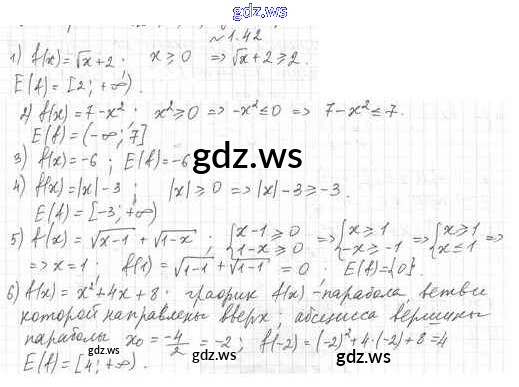 gdz.ws
№1.42
1) f(x) = √x + 2 ; x ≥ 0 ⇒ √x + 2 ≥ 2.
E(f) = [2; +∞).
2) f(x) = 7 - x² ; x² ≥ 0 ⇒ -x² ≤ 0 ⇒ 7 - x² ≤ -7.
E(f) = (-∞; 7]
3) f(x) = -6 ; E(f) = -6
gdz.ws
4) f(x) = |x| - 3 ; |x| ≥ 0 ⇒ |x| - 3 ≥ -3.
E(f) = [-3; +∞)
5) f(x) = √x-1 + √1-x ; {x-1 ≥ 0 1-x ≥ 0 ⇒ {x ≥ 1 -x ≥ -1 ⇒ {x ≥ 1 x ≤ 1 ⇒
⇒ x = 1 ; f(1) = √1-1 + √1-1 = 0 ; E(f) = {0}.
6) f(x) = x² + 4x + 8 ; график f(x) - парабола, ветви
которой направлены вверх; абсцисса вершины
параболы x₀ = -4/2 = -2 ; f(-2) = (-2)² + 4·(-2) + 8 = 4
E(f) = [4; +∞).
gdz.ws
gdz.ws